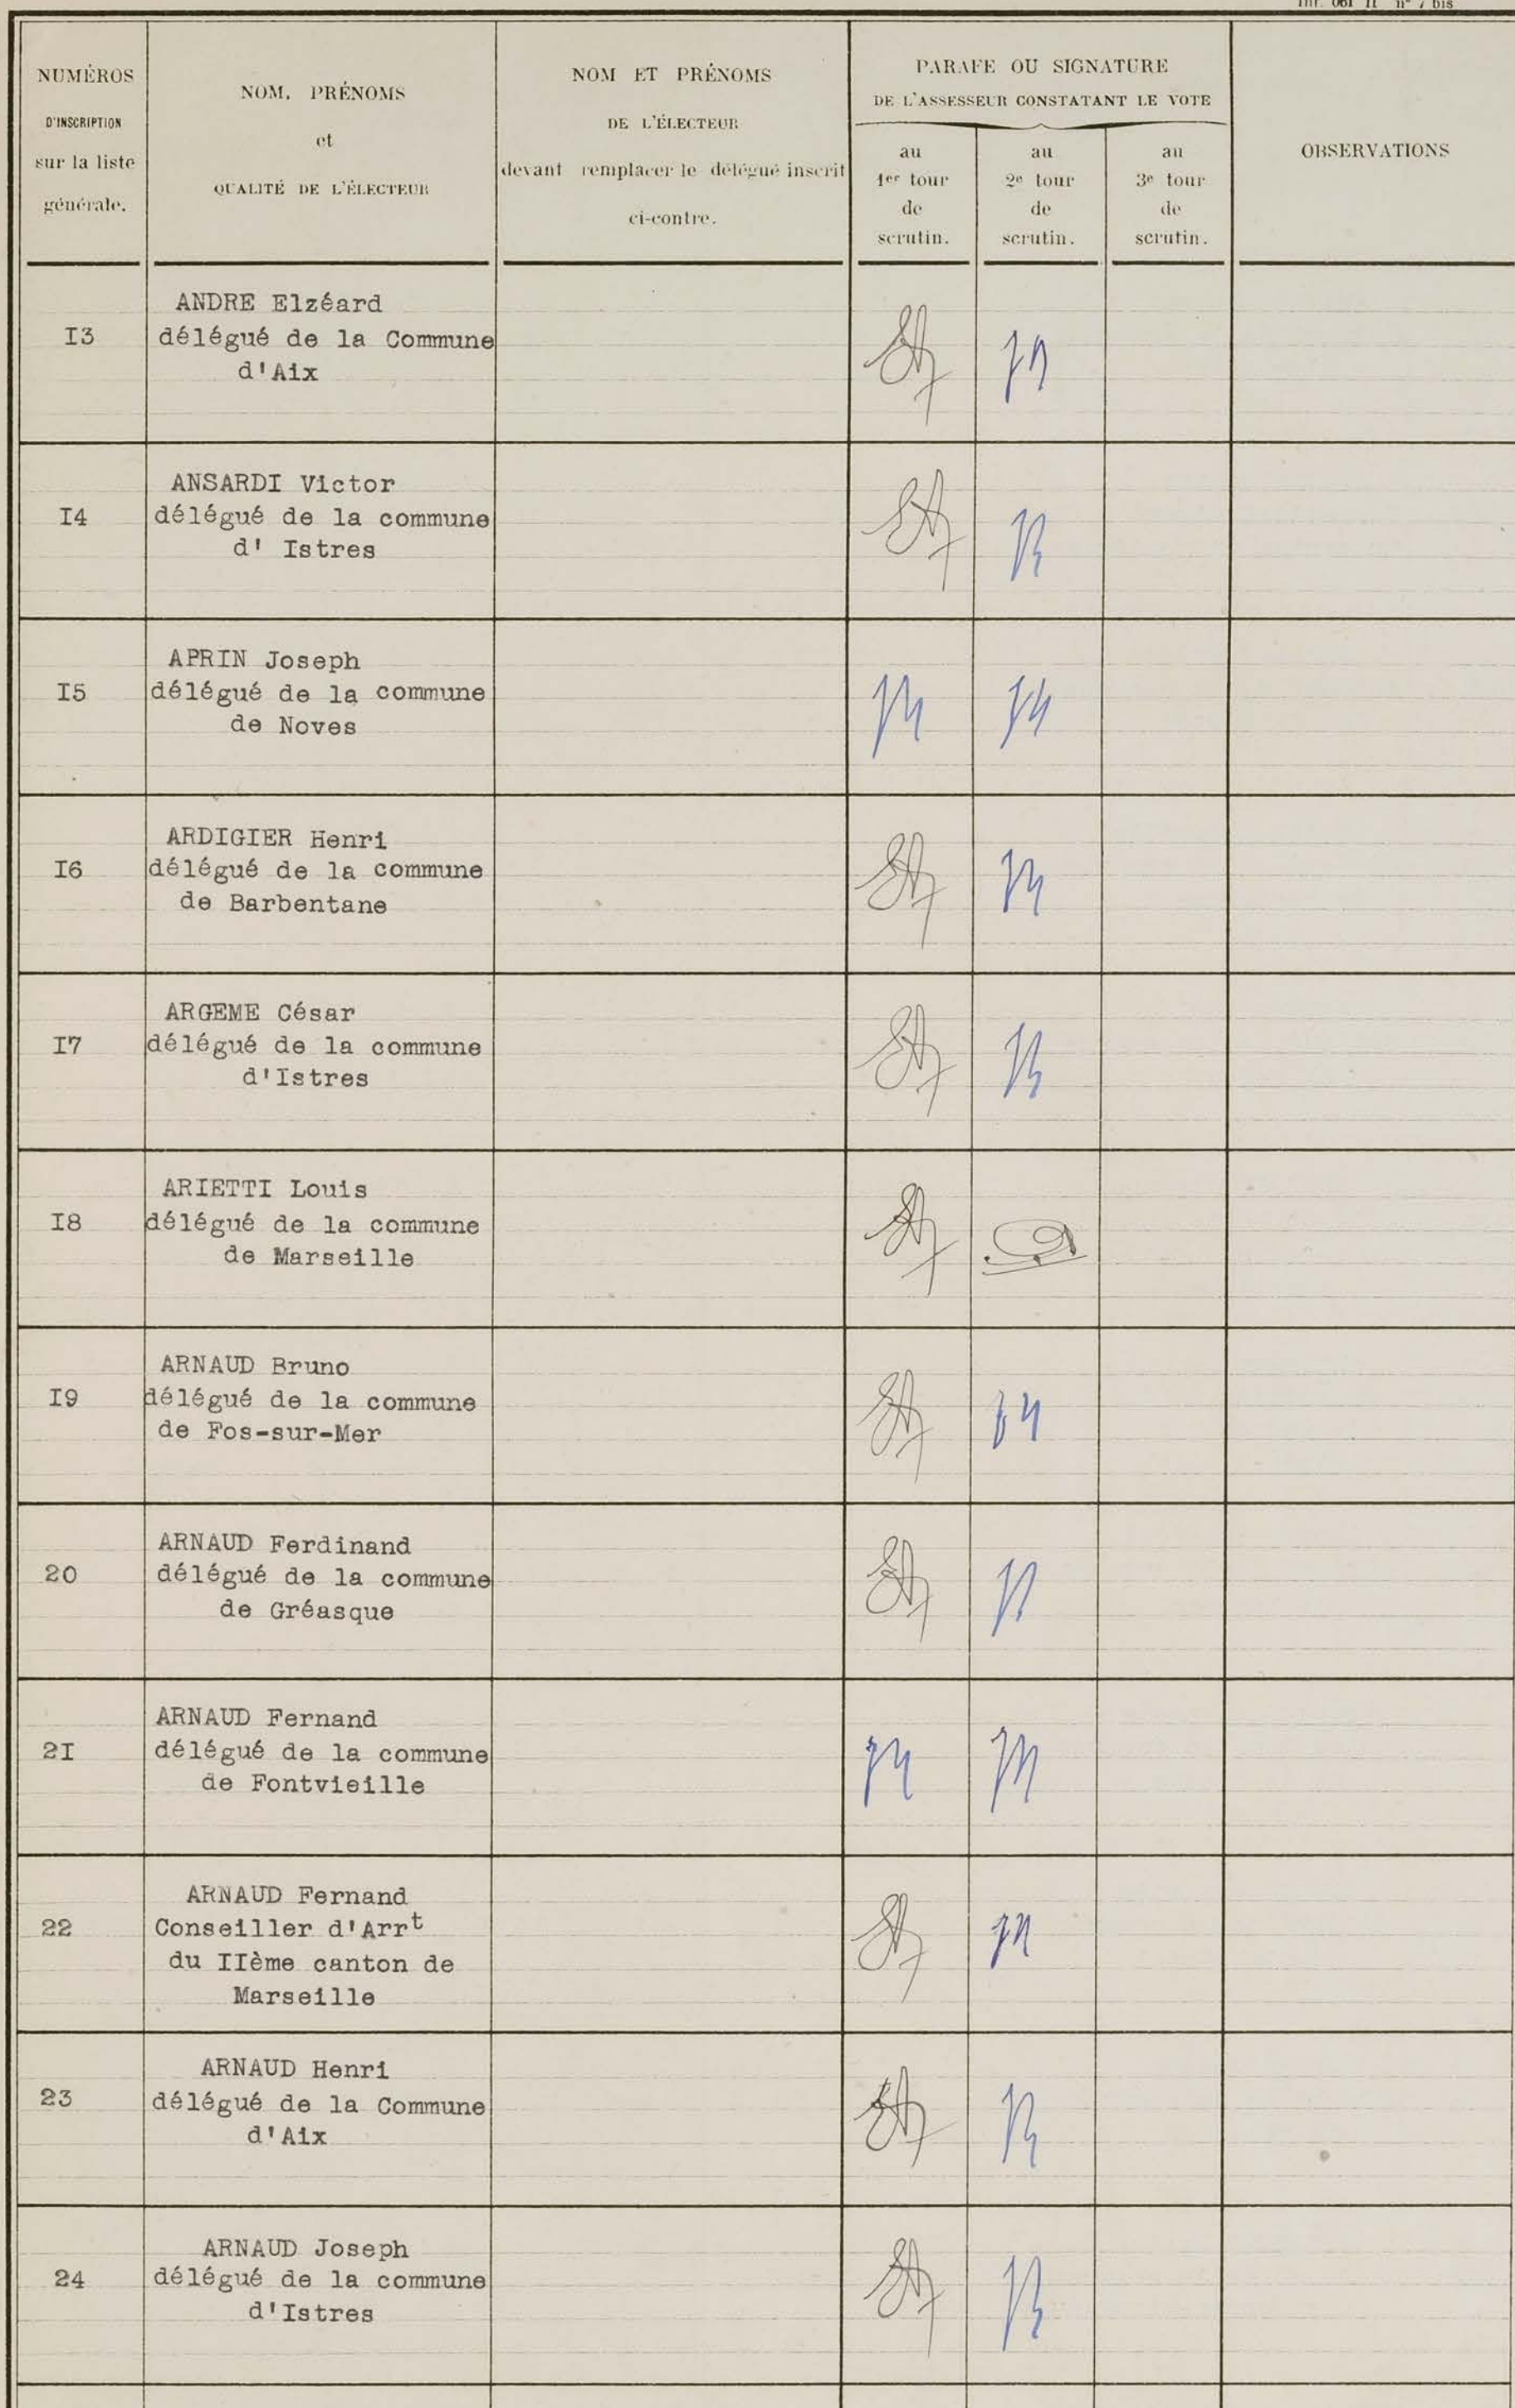 NUMÉROS
D'INSCRIPTION
sur la liste
générale.
NOM, PRÉNOMS
et
QUALITÉ DE L'ÉLECTEUR
NOM ET PRÉNOMS
DE L'ÉLECTEUR
devant remplacer le délégué inscrit
ci-contre.
PARAFE OU SIGNATURE
DE L'ASSESSEUR CONSTATANT LE VOTE
au
1er tour
de
scrutin.
au
2e tour
de
scrutin.
au
3e tour
de
scrutin.
OBSERVATIONS
I3
ANDRE Elzéard
délégué de la Commune
d'Aix
I4
ANSARDI Victor
délégué de la commune
d' Istres
I5
APRIN Joseph
délégué de la commune
de Noves
I6
ARDIGIER Henri
délégué de la commune
de Barbentane
I7
ARGEME César
délégué de la commune
d'Istres
I8
ARIETTI Louis
délégué de la commune
de Marseille
I9
ARNAUD Bruno
délégué de la commune
de Fos-sur-Mer
20
ARNAUD Ferdinand
délégué de la commune
de Gréasque
2I
ARNAUD Fernand
délégué de la commune
de Fontvieille
22
ARNAUD Fernand
Conseiller d'Arrt
du IIème canton de
Marseille
23
ARNAUD Henri
délégué de la Commune
d'Aix
24
ARNAUD Joseph
délégué de la commune
d'Istres